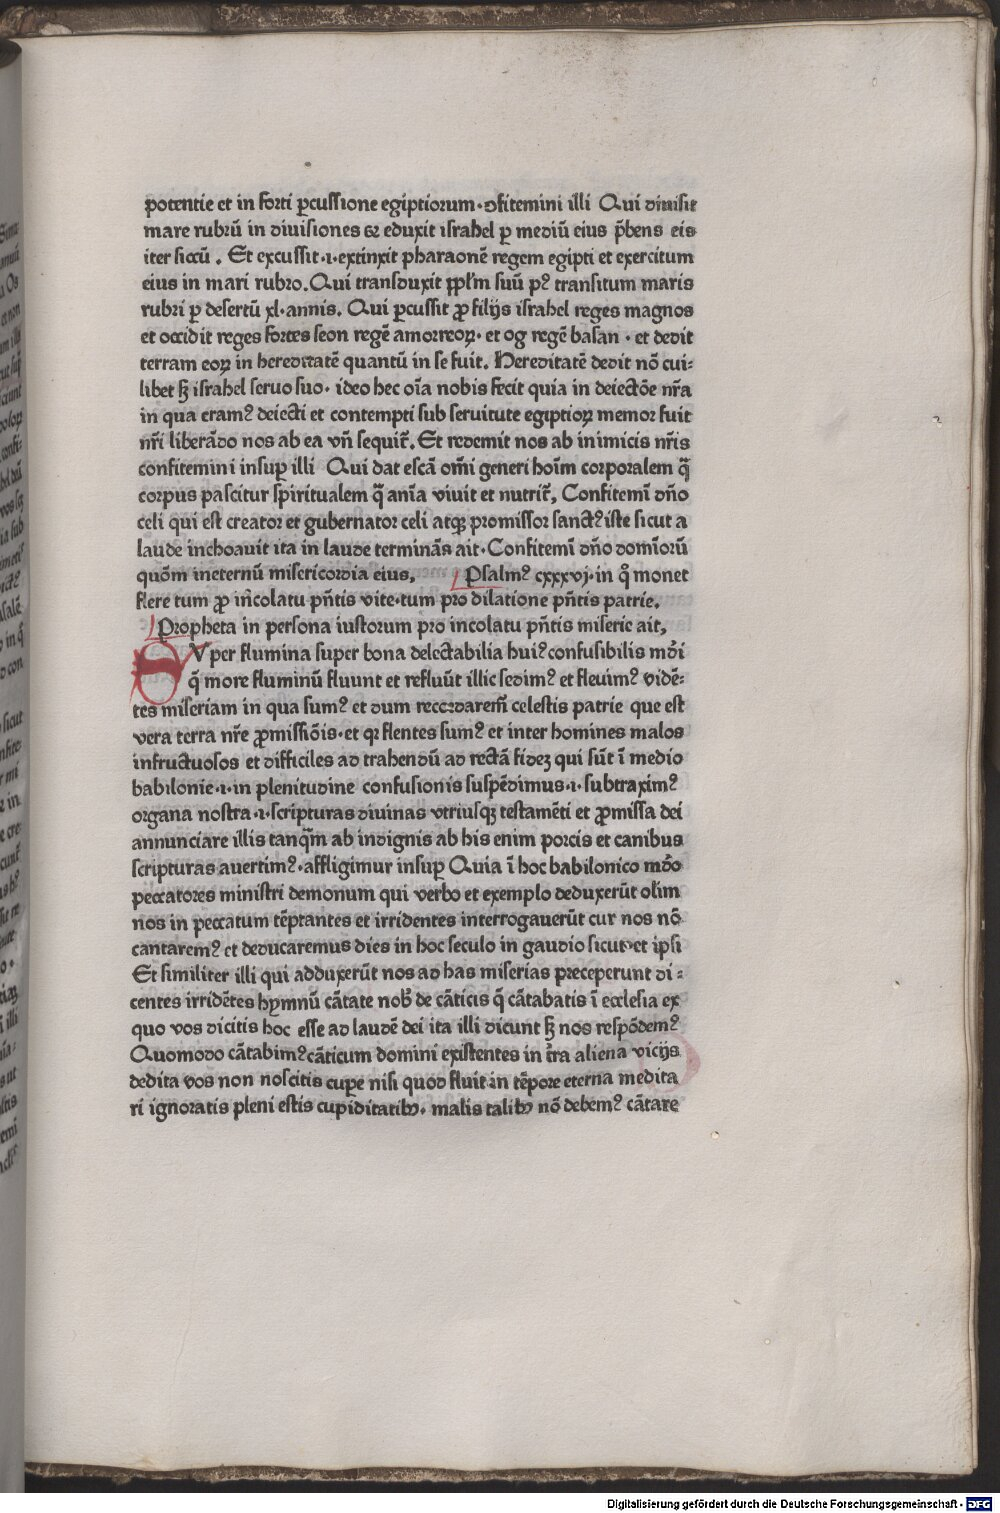 potentie et in forti ꝑcussione egiptiorum · ↄfitemini illi Qui diuisit
mare rubrū in diuisiones ⁊ eduxit israhel ꝑ mediū eius p̄bens eis
iter siccū . Et excussit ·i· extinxit pharaonē regem egipti et exercitum
eius in mari rubro. Qui transduxit ppłm suū pꝰ transitum maris
rubri ꝑ desertū xl · annis. Qui ꝑcussit ꝓ filijs israhel reges magnos
et occidit reges fortes seon regē amorreoꝝ · et og regē basan · et dedit
terram eoꝝ in hereditatē quantū in se fuit. Hereditatē dedit nō cui⸗
libet sꝫ israhel seruo suo · ideo hec oīa nobis fecit quia in deiectōe nr̄a
in qua eramꝰ deiecti et contempti sub seruitute egiptioꝝ memor fuit
nr̄i liberādo nos ab ea vn̄ sequit᷑. Et redemit nos ab inimicis nr̄is
confitemini insuꝑ illi Qui dat escā om̄i generi hoīm corporalem q̄
corpus pascitur spiritualem q̄ anīa viuit et nutrit᷑, Confitemī dn̄o
celi qui est creator et gubernator celi atqꝫ promissor sanctꝰ iste sicut a
laude inchoauit ita in laude terminās ait · Confitemī dn̄o domīorū
quōm ineternū misericordia eius, Psalmꝰ cxxxvj · in qͦ monet
flere tum ꝓ incolatu pn̄tis vite · tum pro dilatione pn̄tis patrie.
Propheta in persona iustorum pro incolatu pn̄tis miserie ait,
SVper flumina super bona delectabilia huiꝰ confusibilis mūdi
q̄ more fluminū fluunt et refluūt illic sedimꝰ et fleuimꝰ vidē⸗
tes miseriam in qua sumꝰ et dum recordaremur celestis patrie que est
vera terra nr̄e ꝓmissiōis · et qꝛ flentes sumꝰ et inter homines malos
infructuosos et difficiles ad trahendū ad rectā fideꝫ qui sūt ī medio
babilonie · i · in plenitudine confusionis suspēdimus · i · subtraximꝰ
organa nostra · i · scripturas diuinas vtriusqꝫ testamēti et ꝓmissa dei
annunciare illis tanq̄m ab indignis ab his enim porcis et canibus
scripturas auertimꝰ · affligimur insuꝑ Quia ī hoc babilonico mūdo
peccatores ministri demonum qui verbo et exemplo deduxerūt olim
nos in peccatum tēptantes et irridentes interrogauerūt cur nos nō
cantaremꝰ et deducaremus dies in hoc seculo in gaudio sicut et ipsi
Et similiter illi qui adduxerūt nos ad has miserias preceperunt di⸗
centes irridētes hymnū cātate nob̄ de cāticis q̄ cātabatis ī ecclesia ex
quo vos dicitis hoc esse ad laudē dei ita illi dicunt sꝫ nos respōdemꝰ
Quomodo cātabimꝰ cāticum domini existentes in tr̄a aliena vicijs
dedita vos non noscitis cupe nisi quod fluit in tēpore eterna medita
ri ignoratis pleni estis cupiditatibꝰ · malis talibꝰ nō debemꝰ cātare
Digitalisierung gefördert durch die Deutsche Forschungsgemeinschaft - DFG